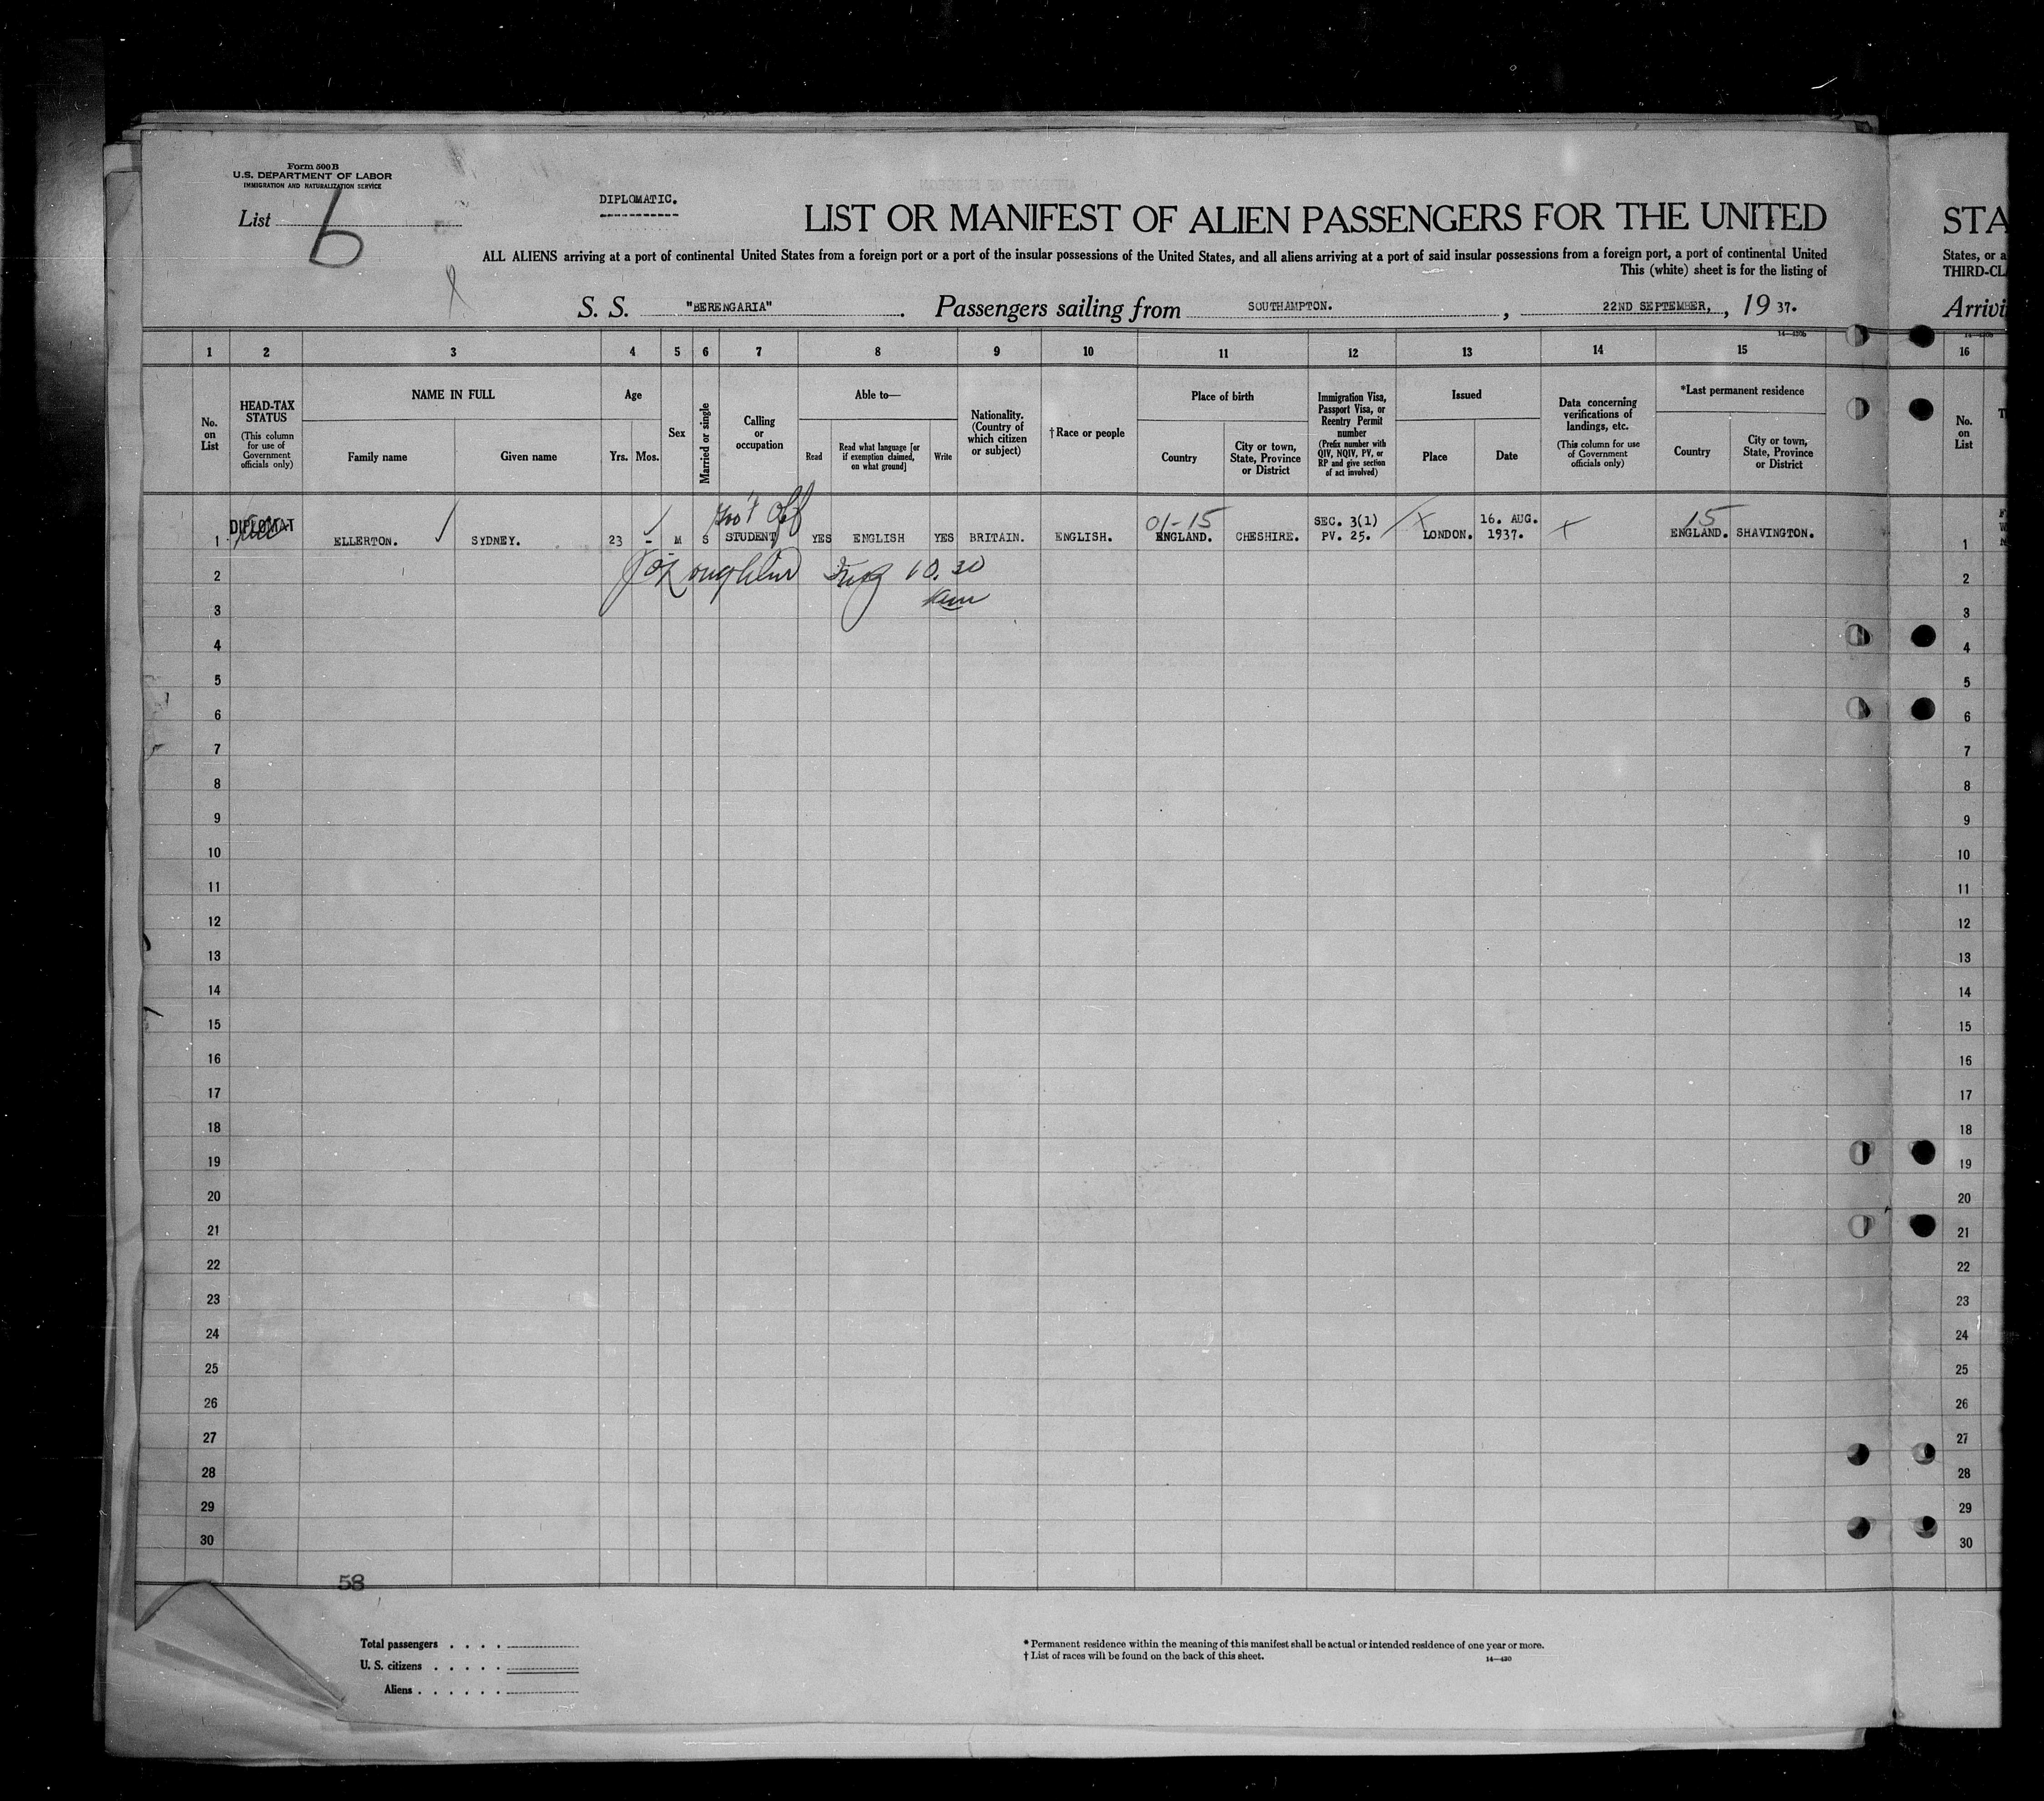 Form 500 B
U.S. DEPARTMENT OF LABOR
IMMIGRATION AND NATURALIZATION SERVICE
List 6
DIPLOMATIC.
LIST OR MANIFEST OF ALIEN PASSENGERS FOR THE UNITED
STA
ALL ALIENS arriving at a port of continental United States from a foreign port or a port of the insular possessions of the United States, and all aliens arriving at a port of said insular possessions from a foreign port, a port of continental United
States, or a
This (white) sheet is for the listing of
THIRD-CL
S. S. "BERENGARIA". Passengers sailing from SOUTHAMPTON. , 22ND SEPTEMBER, , 19 37.
Arrivi
1 2 3 4 5 6 7 8 9 10 11 12 13 14 15
16
No. on List
HEAD-TAX STATUS
(This column for use of Government officials only)
NAME IN FULL
Family name
Given name
Age
Yrs. Mos.
Sex
Married or single
Calling or occupation
Able to—
Read
Read what language [or if exemption claimed, on what ground]
Write
Nationality. (Country of which citizen or subject)
†Race or people
Place of birth
Country
City or town, State, Province or District
Immigration Visa, Passport Visa, or Reentry Permit number
(Prefix number with QIV, NQIV, PV, or RP and give section of act involved)
Issued
Place
Date
Data concerning verifications of landings, etc.
(This column for use of Government officials only)
*Last permanent residence
Country
City or town, State, Province or District
No. on List
Gov't Off
01-15
15
DIPLOMAT
1 ELLERTON. SYDNEY. 23 - M S STUDENT YES ENGLISH YES BRITAIN. ENGLISH. ENGLAND. CHESHIRE. SEC. 3(1) PV. 25. LONDON. 16. AUG. 1937. ENGLAND. SHAVINGTON.
1
2 10.30
2
3
3
4
4
5
5
6
6
7
7
8
8
9
9
10
10
11
11
12
12
13
13
14
14
15
15
16
16
17
17
18
18
19
19
20
20
21
21
22
22
23
23
24
24
25
25
26
26
27
27
28
28
29
29
30
30
58
Total passengers . . . .
U. S. citizens . . . . .
Aliens . . . . . .
* Permanent residence within the meaning of this manifest shall be actual or intended residence of one year or more.
† List of races will be found on the back of this sheet.
14—430